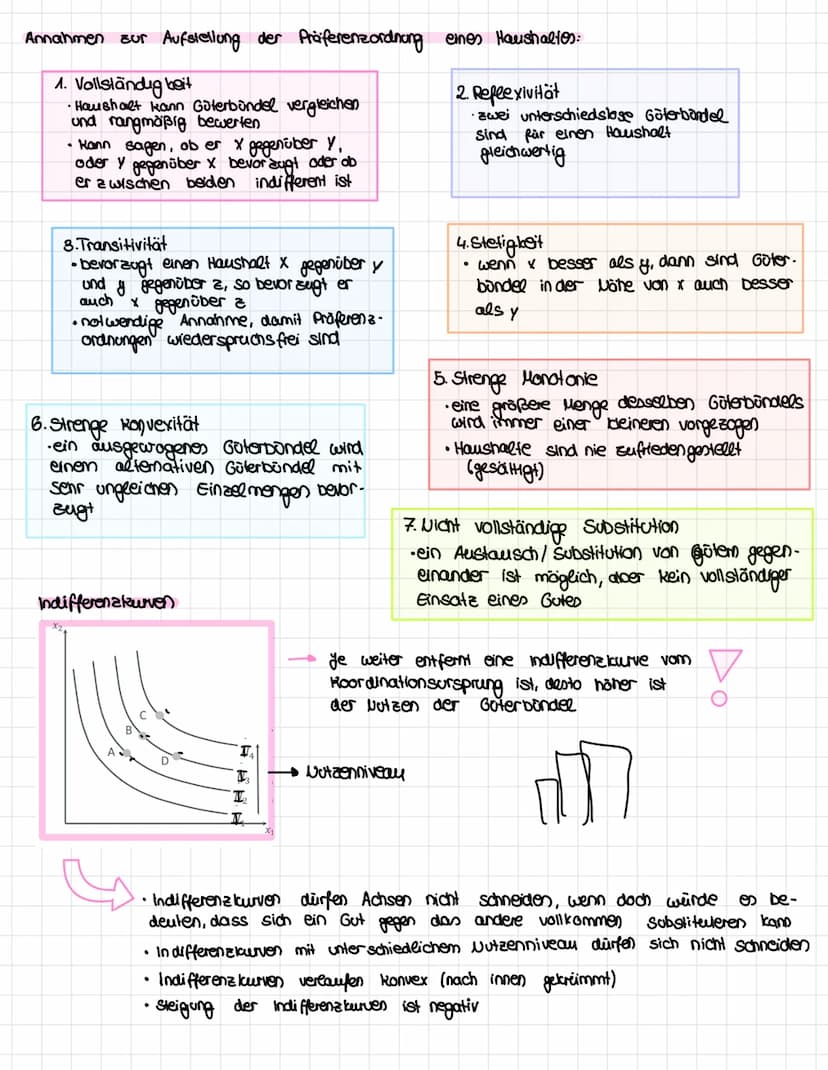 Annahmen zur Aufstellung der Präferenzordnung eines Haushaltes:
1. Vollständigkeit
• Haushalt kann Güterbündel vergleichen
und rangmäßig bewerten
• kann sagen, ob er x gegenüber y,
oder y gegenüber x bevorzugt oder ob
er zwischen beiden indifferent ist
2. Reflexivität
• zwei unterschiedslose Güterbündel
sind für einen Haushalt
gleichwertig
3. Transitivität
• bevorzugt einen Haushalt x gegenüber y
und y gegenüber z, so bevorzugt er
auch x gegenüber z
• notwendige Annahme, damit Präferenz-
ordnungen wiederspruchsfrei sind
4. Stetigkeit
• wenn x besser als y, dann sind Güter-
bündel in der Nähe von x auch besser
als y
5. Strenge Monotonie
• eine größere Menge desselben Güterbündels
wird immer einer kleineren vorgezogen
• Haushalte sind nie zufriedengestellt
(gesättigt)
6. Strenge Konvexität
• ein ausgewogenes Güterbündel wird
einem alternativen Güterbündel mit
sehr ungleichen Einzelmengen bevor-
zugt
7. Nicht vollständige Substitution
• ein Austausch/Substitution von Gütern gegen-
einander ist möglich, aber kein vollständiger
Einsatz eines Gutes
Indifferenzkurven
x2
C
B
A
D
I4
I3
I2
I1
x1
→ Je weiter entfernt eine Indifferenzkurve vom
Koordinationsursprung ist, desto höher ist
der Nutzen der Güterbündel
→ Nutzenniveau
• Indifferenzkurven dürfen Achsen nicht schneiden, wenn doch würde es be-
deuten, dass sich ein Gut gegen das andere vollkommen substituieren kann
• Indifferenzkurven mit unterschiedlichem Nutzenniveau dürfen sich nicht schneiden
• Indifferenzkurven verlaufen konvex (nach innen gekrümmt)
• Steigung der Indifferenzkurven ist negativ